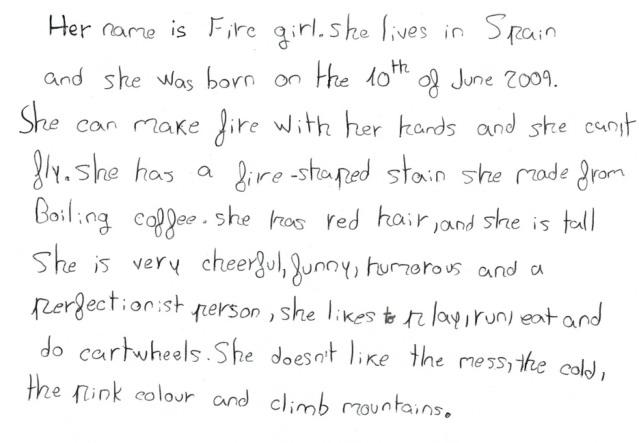 Her name is Fire girl. she lives in Spain
and she was born on the 10th of June 2009.
She can make fire with her hands and she can't
fly. she has a fire-shaped stain she made from
Boiling coffee. she has red hair, and she is tall
She is very cheerful, funny, humorous and a
perfectionist person, she likes to play, run, eat and
do cartwheels. She doesn't like the mess, the cold,
the pink colour and climb mountains.